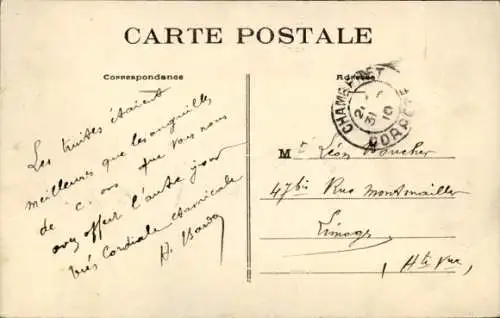 CARTE POSTALE
Correspondance
Adresse
Les truites étaient
meilleures que les anguilles
de c. que vous nous
avez offert l'autre jour
très cordiale et amicale
CHAMBERET
31 10
CORRÈZE
M r Léon Boucher
47 bis Rue Montmailler
Limoges
Hte Vne